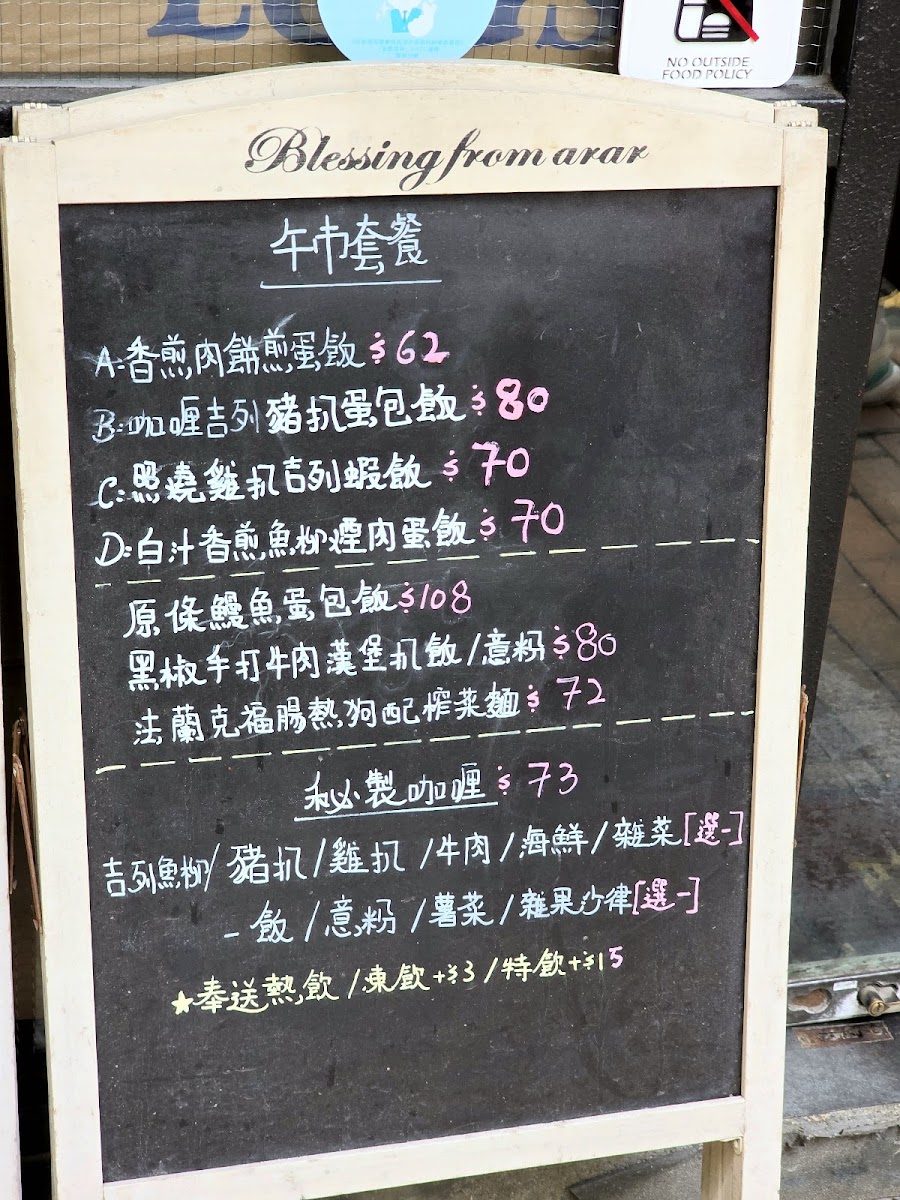 NO OUTSIDE
FOOD POLICY
Blessing from arar
午市套餐
A:香煎肉餅煎蛋飯 $62
B:咖喱吉列豬扒蛋包飯 $80
C:照燒雞扒吉列蝦飯 $70
D:白汁香煎魚柳煙肉蛋飯 $70
原條鰻魚蛋包飯 $108
黑椒手打牛肉漢堡扒飯/意粉 $80
法蘭克福腸熱狗配榨菜麵 $72
秘製咖喱 $73
吉列魚柳/豬扒/雞扒/牛肉/海鮮/雜菜[選一]
-飯/意粉/薯菜/雜果沙律[選一]
★奉送熱飲/凍飲+$3/特飲+$15